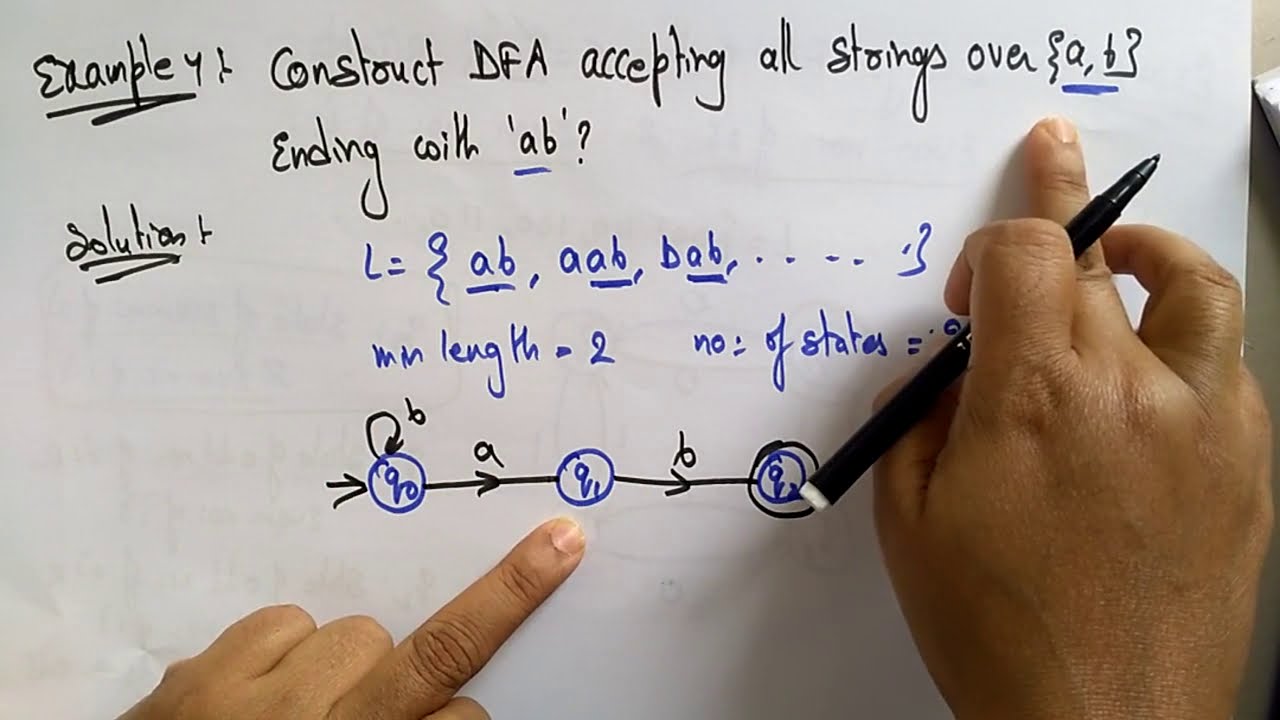 Example 4:- Construct DFA accepting all strings over {a, b}
Ending with 'ab'?
Solution:-
L = { ab, aab, bab, . . . . . . }
min length = 2 no: of states =
b
a b
q0 q1 q2